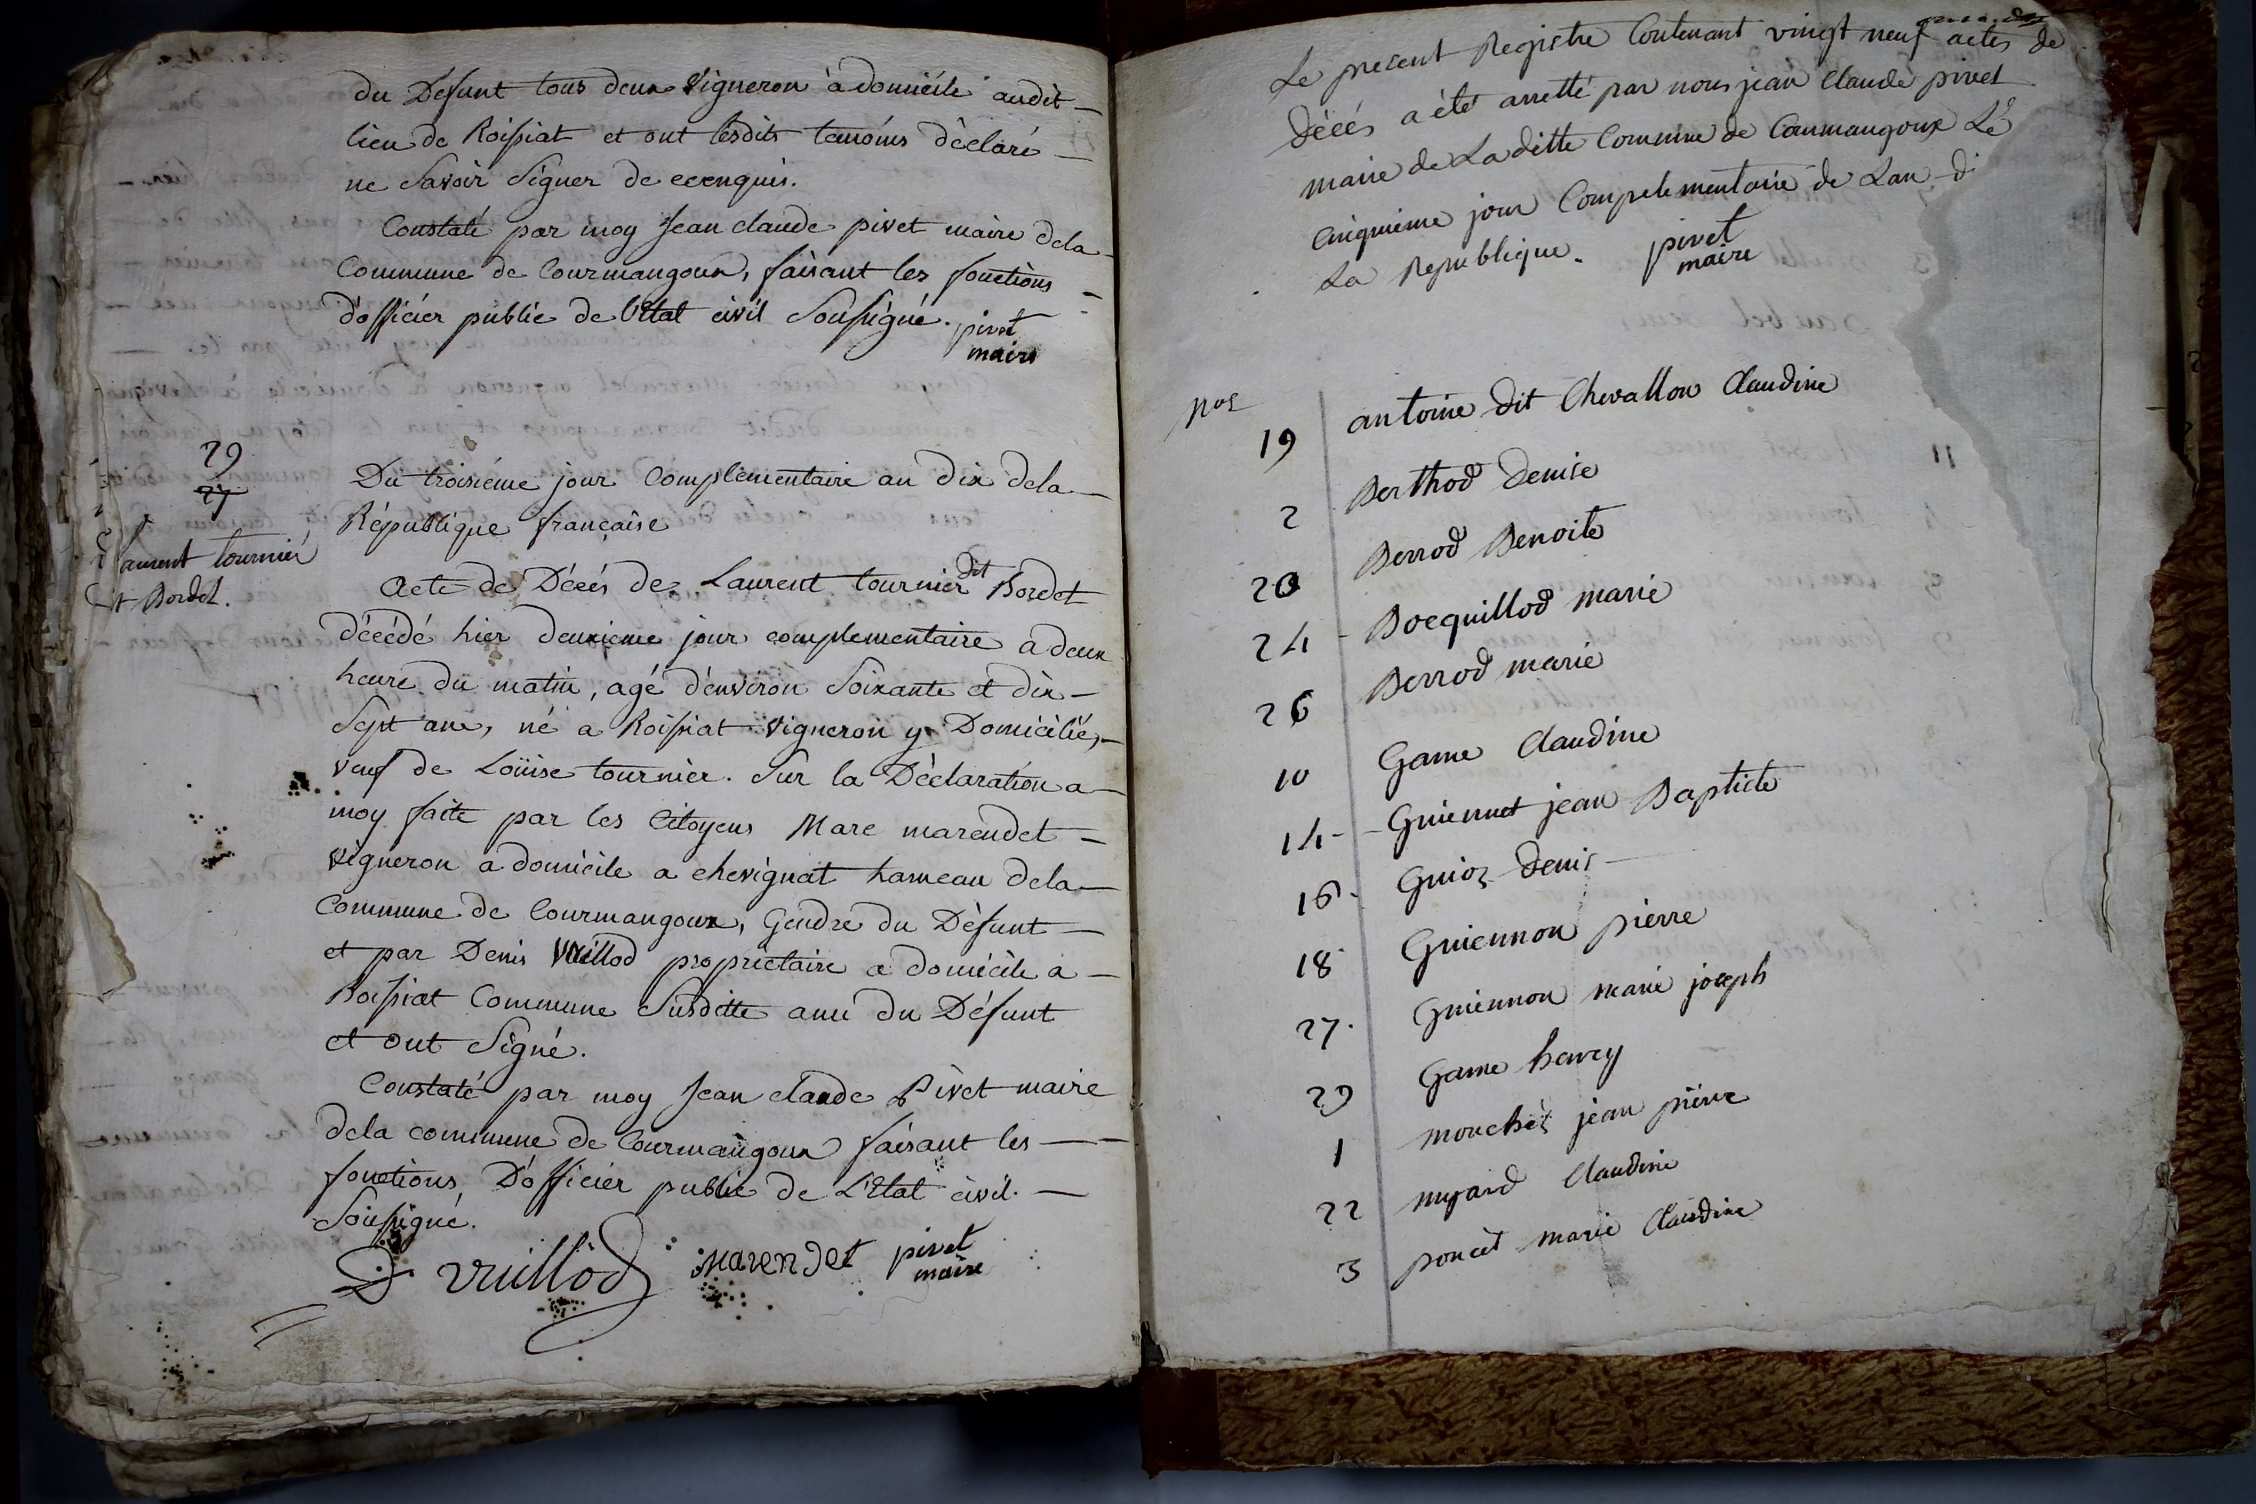 du Defunt tous deux vigneron à domicile audit
lieu de Roissiat et ont lesdits temoins déclaré
ne savoir signer de ce enquis.
Constaté par moy Jean claude pivet maire dela
Commune de Courmangoux, faisant les fonctions
d'officier public de l'Etat civil soussigné. pivet
maire
29
27
Laurent tournier
dit Bordet.
Du troisième jour Complementaire an dix dela
République française
Acte de Décés de Laurent tournier dit Bordet
décédé hier deuxieme jour complementaire a deux
heure du matin, agé d'environ Soixante et dix
Sept ans, né a Roissiat vigneron y Domicilié,
veuf de Loüise tournier. Sur la Déclaration a
moy faite par les Citoyens Marc marendet
vigneron a domicile a chevignat hameau dela
Commune de Courmangoux, Gendre du Défunt
et par Denis Vuillod proprietaire a domicile a
Roissiat Commune Susditte ami du Défunt
et ont Signé.
Constaté par moy Jean claude Pivet maire
dela commune de Courmangoux faisant les
fonctions D'officier public de L'Etat civil.
Soussigné.
D. vuillod marendet pivet
maire
Le present Registre Contenant vingt neuf actes de
Décés a été arretté par nous jean Claude pivet
maire de La ditte Commune de Courmangoux Le
Cinquieme jour Complementaire de Lan di
La Republique. pivet
maire
nos
19 antoine dit Chevallon Claudine
2 Berthod Denise
20 Berrod Benoite
24 Bocquillod marie
26 Berrod marie
10 Game Claudine
14 Guiennet jean Baptiste
16 Guioz Denis
18 Guiennon pierre
27. Guiennon marie joseph
29 Game henry
1 mouchez jean pierre
22 myard Claudine
3 poncet marie Claudine